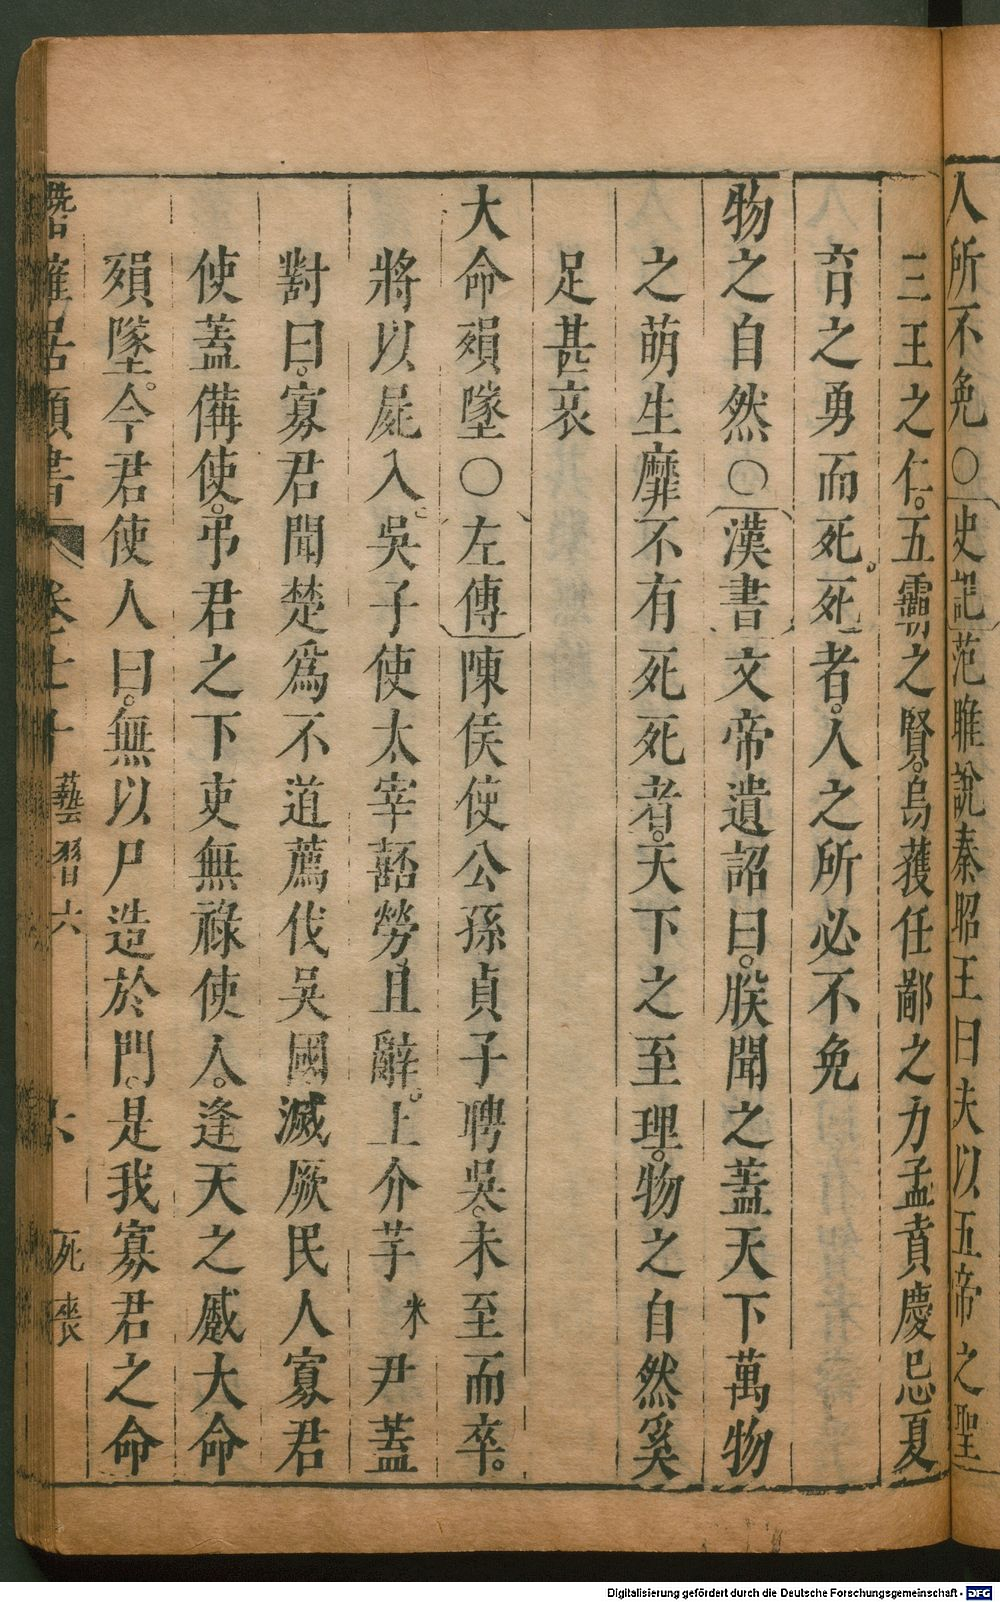 人所不免○史記范雎說秦昭王曰夫以五帝之聖
三王之仁。五霸之賢。烏獲任鄙之力孟賁慶忌夏
育之勇而死。死者。人之所必不免
物之自然○漢書文帝遺詔曰。朕聞之蓋天下萬物
之萌生靡不有死死者。天下之至理。物之自然奚
足甚哀
大命殞墜○左傳陳侯使公孫貞子聘吳。未至而卒。
將以屍入。吳子使太宰嚭勞且辭。上介芋 米 尹蓋
對曰。寡君聞楚爲不道薦伐吳國滅厥民人寡君
使蓋備使。弔君之下吏無祿使人。逢天之慼大命
殞墜。今君使人曰。無以尸造於門。是我寡君之命
潛確居類書 卷七十 藝習六 六 死喪
Digitalisierung gefördert durch die Deutsche Forschungsgemeinschaft - DFG